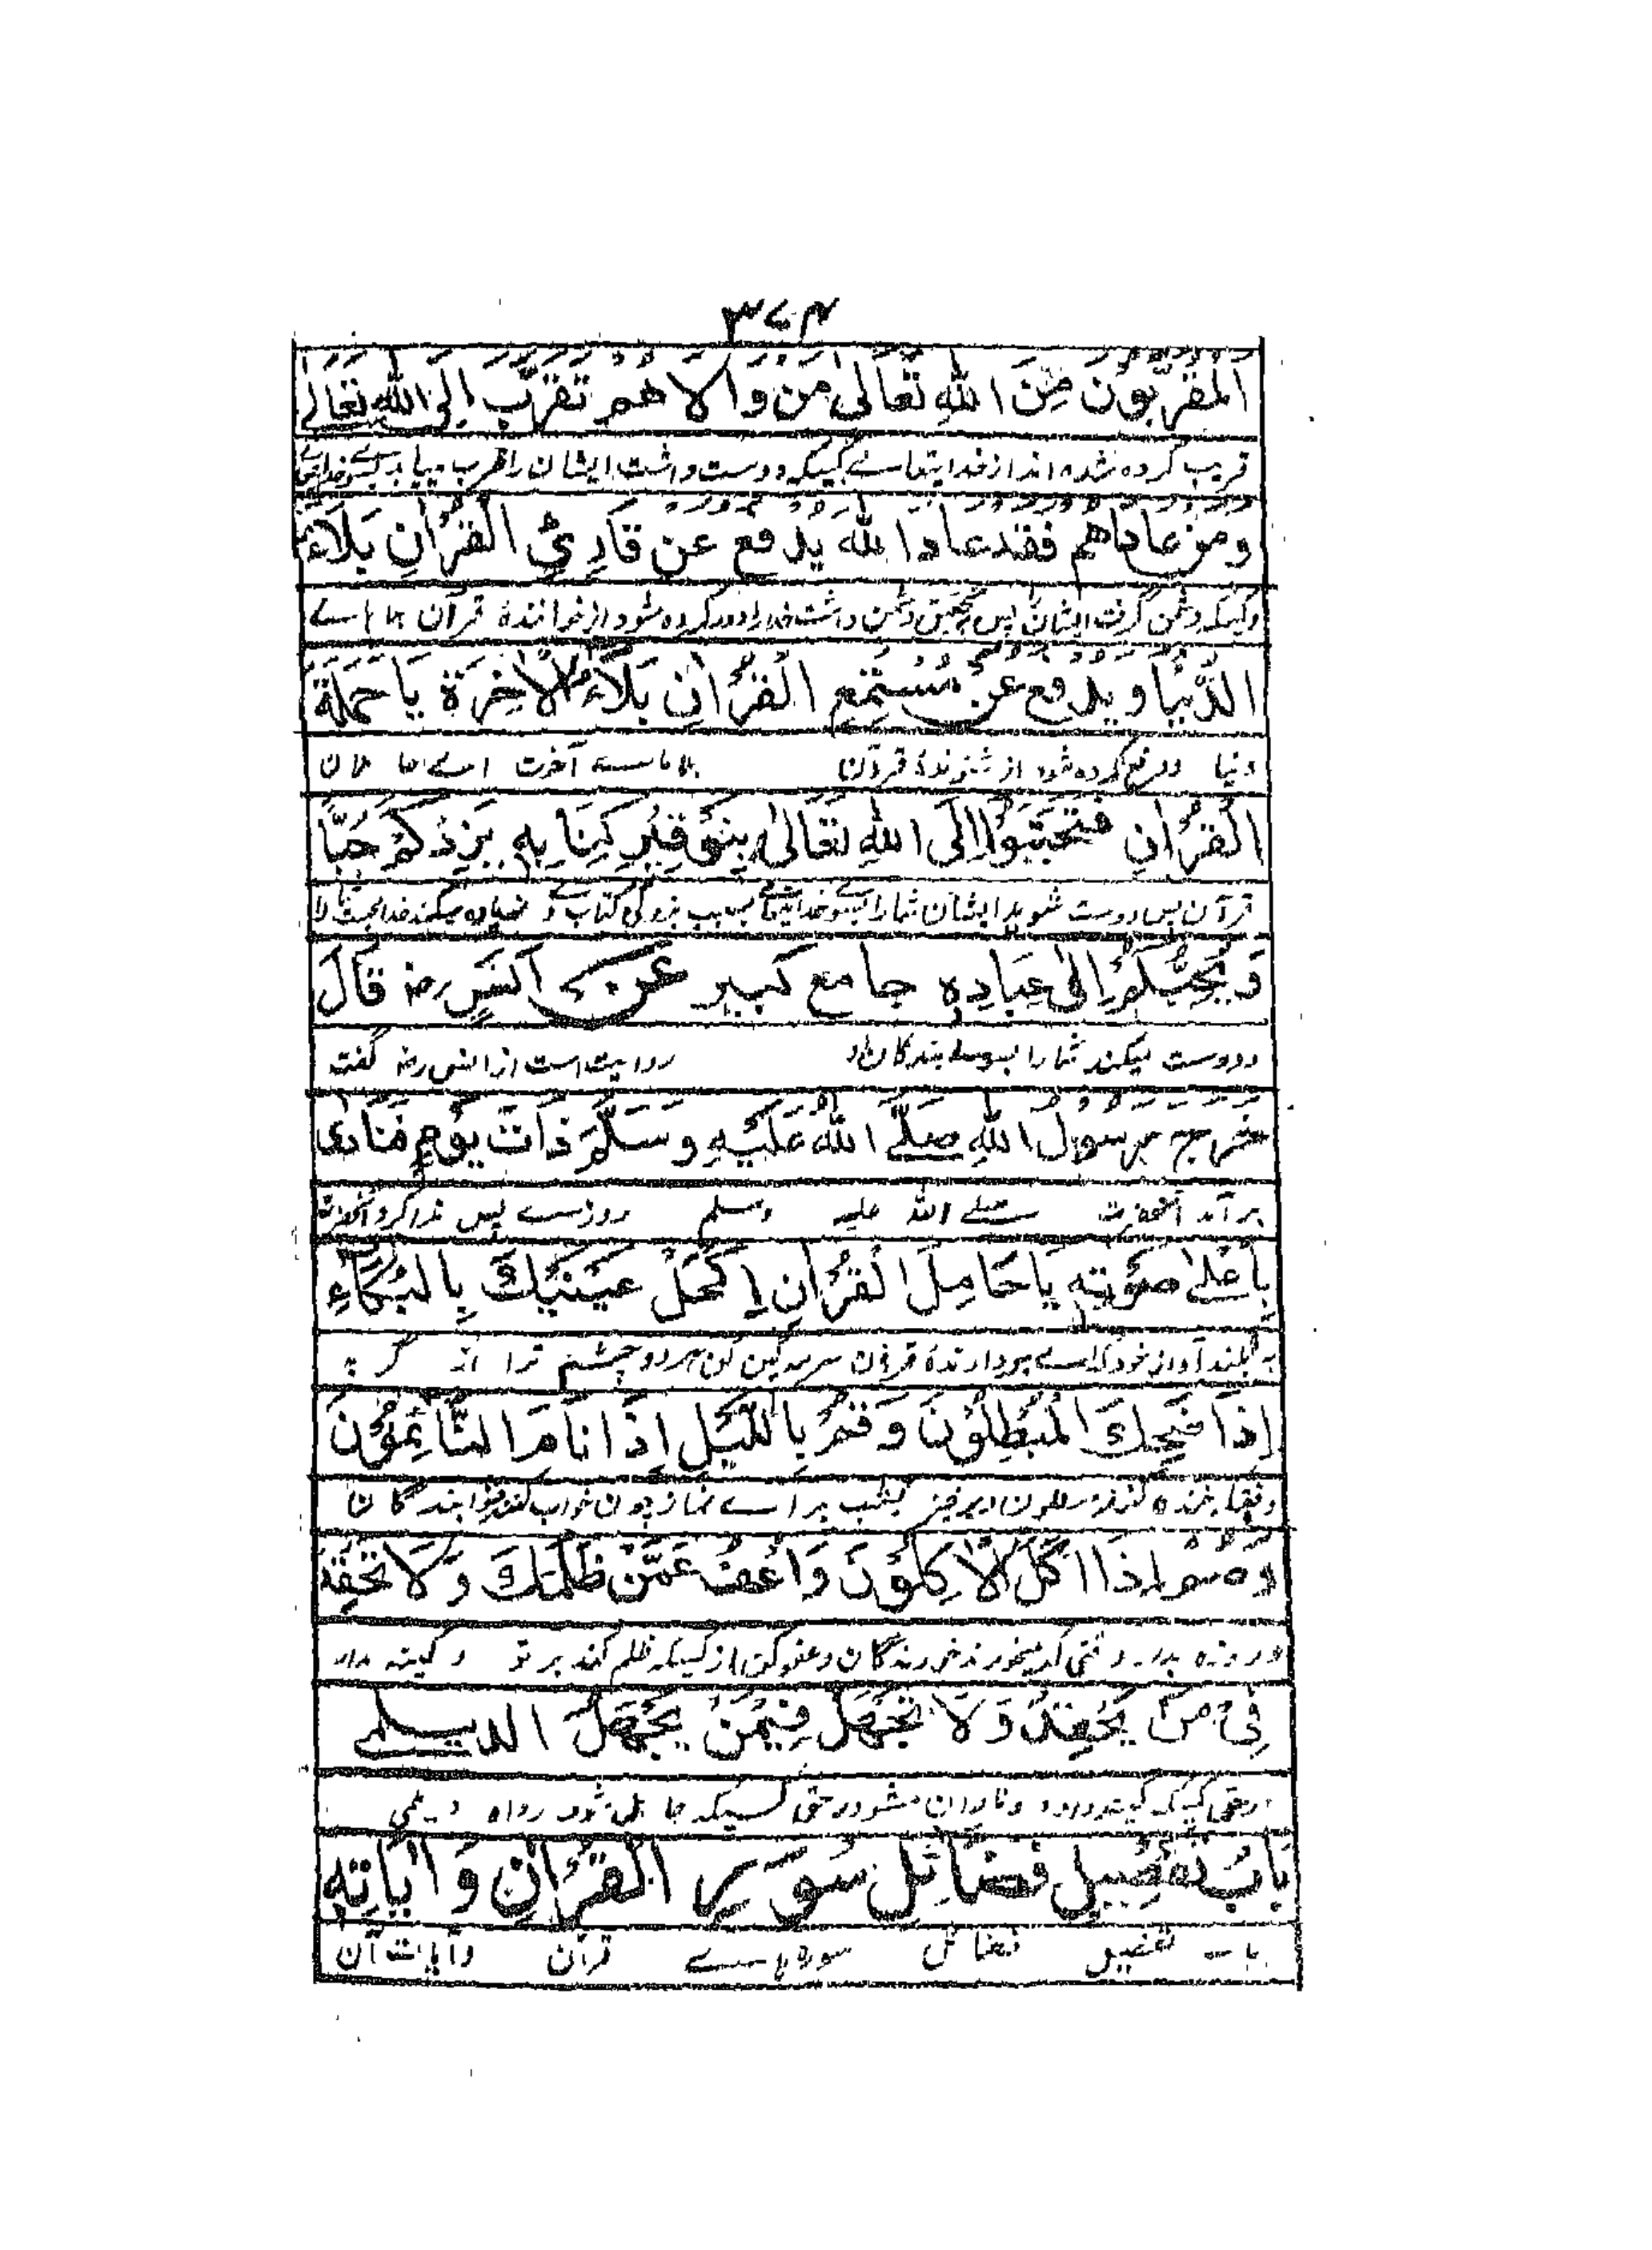 ۳۷۴
الْمُقَرَّبُوْنَ مِنَ اللّٰهِ تَعَالٰى مَنْ وَالَاهُمْ تَقَرَّبَ اِلَى اللّٰهِ تَعَالٰى
قریب کرده شده اند از خدایتعالے کسیکه دوست داشت ایشان را قرب مییابد بسوے خدایتعالے
وَمَنْ عَادَاهُمْ فَقَدْ عَادَ اللّٰهَ يُدْفَعُ عَنْ قَارِئِ الْقُرْاٰنِ بَلَاءُ
وکسیکه دشمن گرفت ایشان پس بتحقیق دشمن داشت خدارا دور کرده شود از خوانندۂ قرآن بلاهاے
الدُّنْيَا وَيُدْفَعُ عَنْ مُسْتَمِعِ الْقُرْاٰنِ بَلَاءُ الْاٰخِرَةِ يَا حَمَلَةَ
دنیا ودفع کرده شود از شنوندۂ قرآن بلاهاے آخرت اے حاملان
الْقُرْاٰنِ فَتَحَبَّبُوْا اِلَى اللّٰهِ تَعَالٰى بِتَوْقِيْرِ كِتَابِهٖ يَزِدْكُمْ حُبًّا
قرآن پس دوست شوید ایشان شمارا بسوے خدایتعالے بسبب بزرگی کتاب و زیاده میکند خدا محبت
وَيُحَبِّبْكُمْ اِلٰى عِبَادِهٖ جامع كبير عَنْ اَنَسٍ رضہ قَالَ
ودوست میکند شمارا بسوے بندگان او روایت است از انس رضہ گفت
خرج رسول اللّٰهِ صَلَّے اللّٰهُ عَلَيْهِ وَسَلَّمَ ذَاتَ يَوْمٍ فَنَادٰى
برآمد آنحضرت صلے اللّٰه علیه وسلم روزے پس ندا کرد آنحضرت
بِاَعْلٰى صَوْتِهٖ يَا حَامِلَ الْقُرْاٰنِ اِكْحَلْ عَيْنَيْكَ بِالْبُكَاءِ
به بلند آواز خود که اے بردارندۂ قرآن سرمه گین کن هر دو چشم ترا از گریه
اِذَا ضَحِكَ الْمُبْطِلُوْنَ وَقُمْ بِاللَّيْلِ اِذَا نَامَ النَّائِمُوْنَ
وقتیکه خنده کنند مبطلون وبرخیز بشب براے نماز چون خواب کنند خوابندگان
وَصُمْ اِذَا اَكَلَ الْاٰكِلُوْنَ وَاعْفُ عَمَّنْ ظَلَمَكَ وَلَا تَحْقِدْ
وروزه بدار وقتی که میخورند خورندگان وعفو کن از کسیکه ظلم کند بر تو وکینه مدار
فِيْ مَنْ يَحْقِدُ وَلَا تَجْهَلْ فِيْمَنْ يَجْهَلُ الديلمے
درحق کسیکه کینه ورزد ونادان مشو درحق کسیکه جاهل شود رواه دیلمی
بَابُ تَفْصِيْلِ فَضَائِلِ سُوَرِ الْقُرْاٰنِ وَاٰيَاتِهٖ
باب تفصیل فضائل سورهاے قرآن وآیات آن